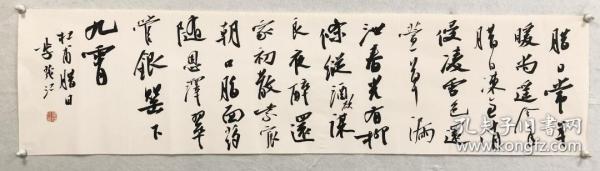 腊日常年
暖尚遥今年
腊日冻全消
侵凌雪色还
萱草漏
泄春光有柳
条纵酒欲谋
良夜醉还
家初散紫宸
朝口脂面药
随恩泽翠
管银罂下
九霄
杜甫腊日
孔夫子旧书网
www.kongfz.com